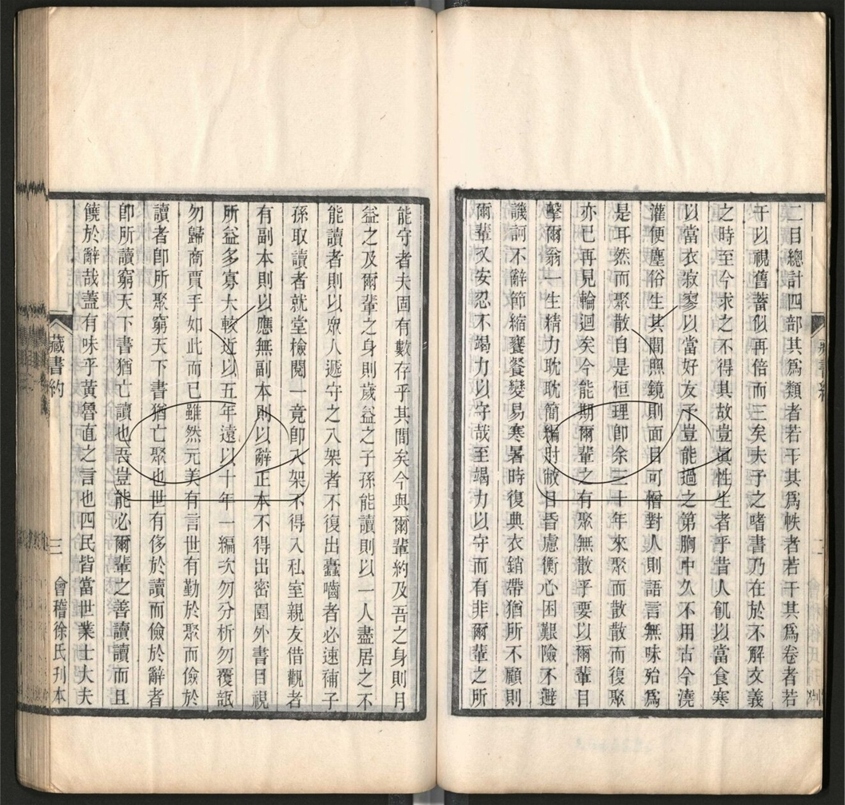 二目總計四部其爲類者若干其爲帙者若干其爲卷者若
干以視舊蓄似再倍而三矣夫予之嗜書乃在於不解文義
之時至今求之不得其故豈眞性生者乎昔人飢以當食寒
以當衣寂寥以當好友予豈能過之第胸中久不用古今澆
灌便塵俗生其間照鏡則面目可憎對人則語言無味殆爲
是耳然而聚散自是恒理卽余三十年來聚而散散而復聚
亦已再見輪迴矣今能期爾輩之有聚無散乎要以爾輩目
擊爾翁一生精力耽耽簡編肘敝目昏慮衡心困艱險不避
譏訶不辭節縮饔餐變易寒暑時復典衣銷帶猶所不顧則
爾輩又安忍不竭力以守哉至竭力以守而有非爾輩之所
能守者夫固有數存乎其間矣今與爾輩約及吾之身則月
益之及爾輩之身則歲益之子孫能讀則以一人盡居之不
能讀者則以衆人遞守之入架者不復出蠹嚙者必速補子
孫取讀者就堂檢閱一竟卽入架不得入私室親友借觀者
有副本則以應無副本則以辭正本不得出密園外書目視
所益多寡大較近以五年遠以十年一編次勿分析勿覆瓿
勿歸商賈手如此而已雖然元美有言世有勤於聚而儉於
讀者卽所聚窮天下書猶亡聚也世有侈於讀而儉於辭者
卽所讀窮天下書猶亡讀也吾豈能必爾輩之善讀讀而且
饒於辭哉蓋有味乎黃魯直之言也四民皆當世業士大夫
藏書約
三
會稽徐氏刊本